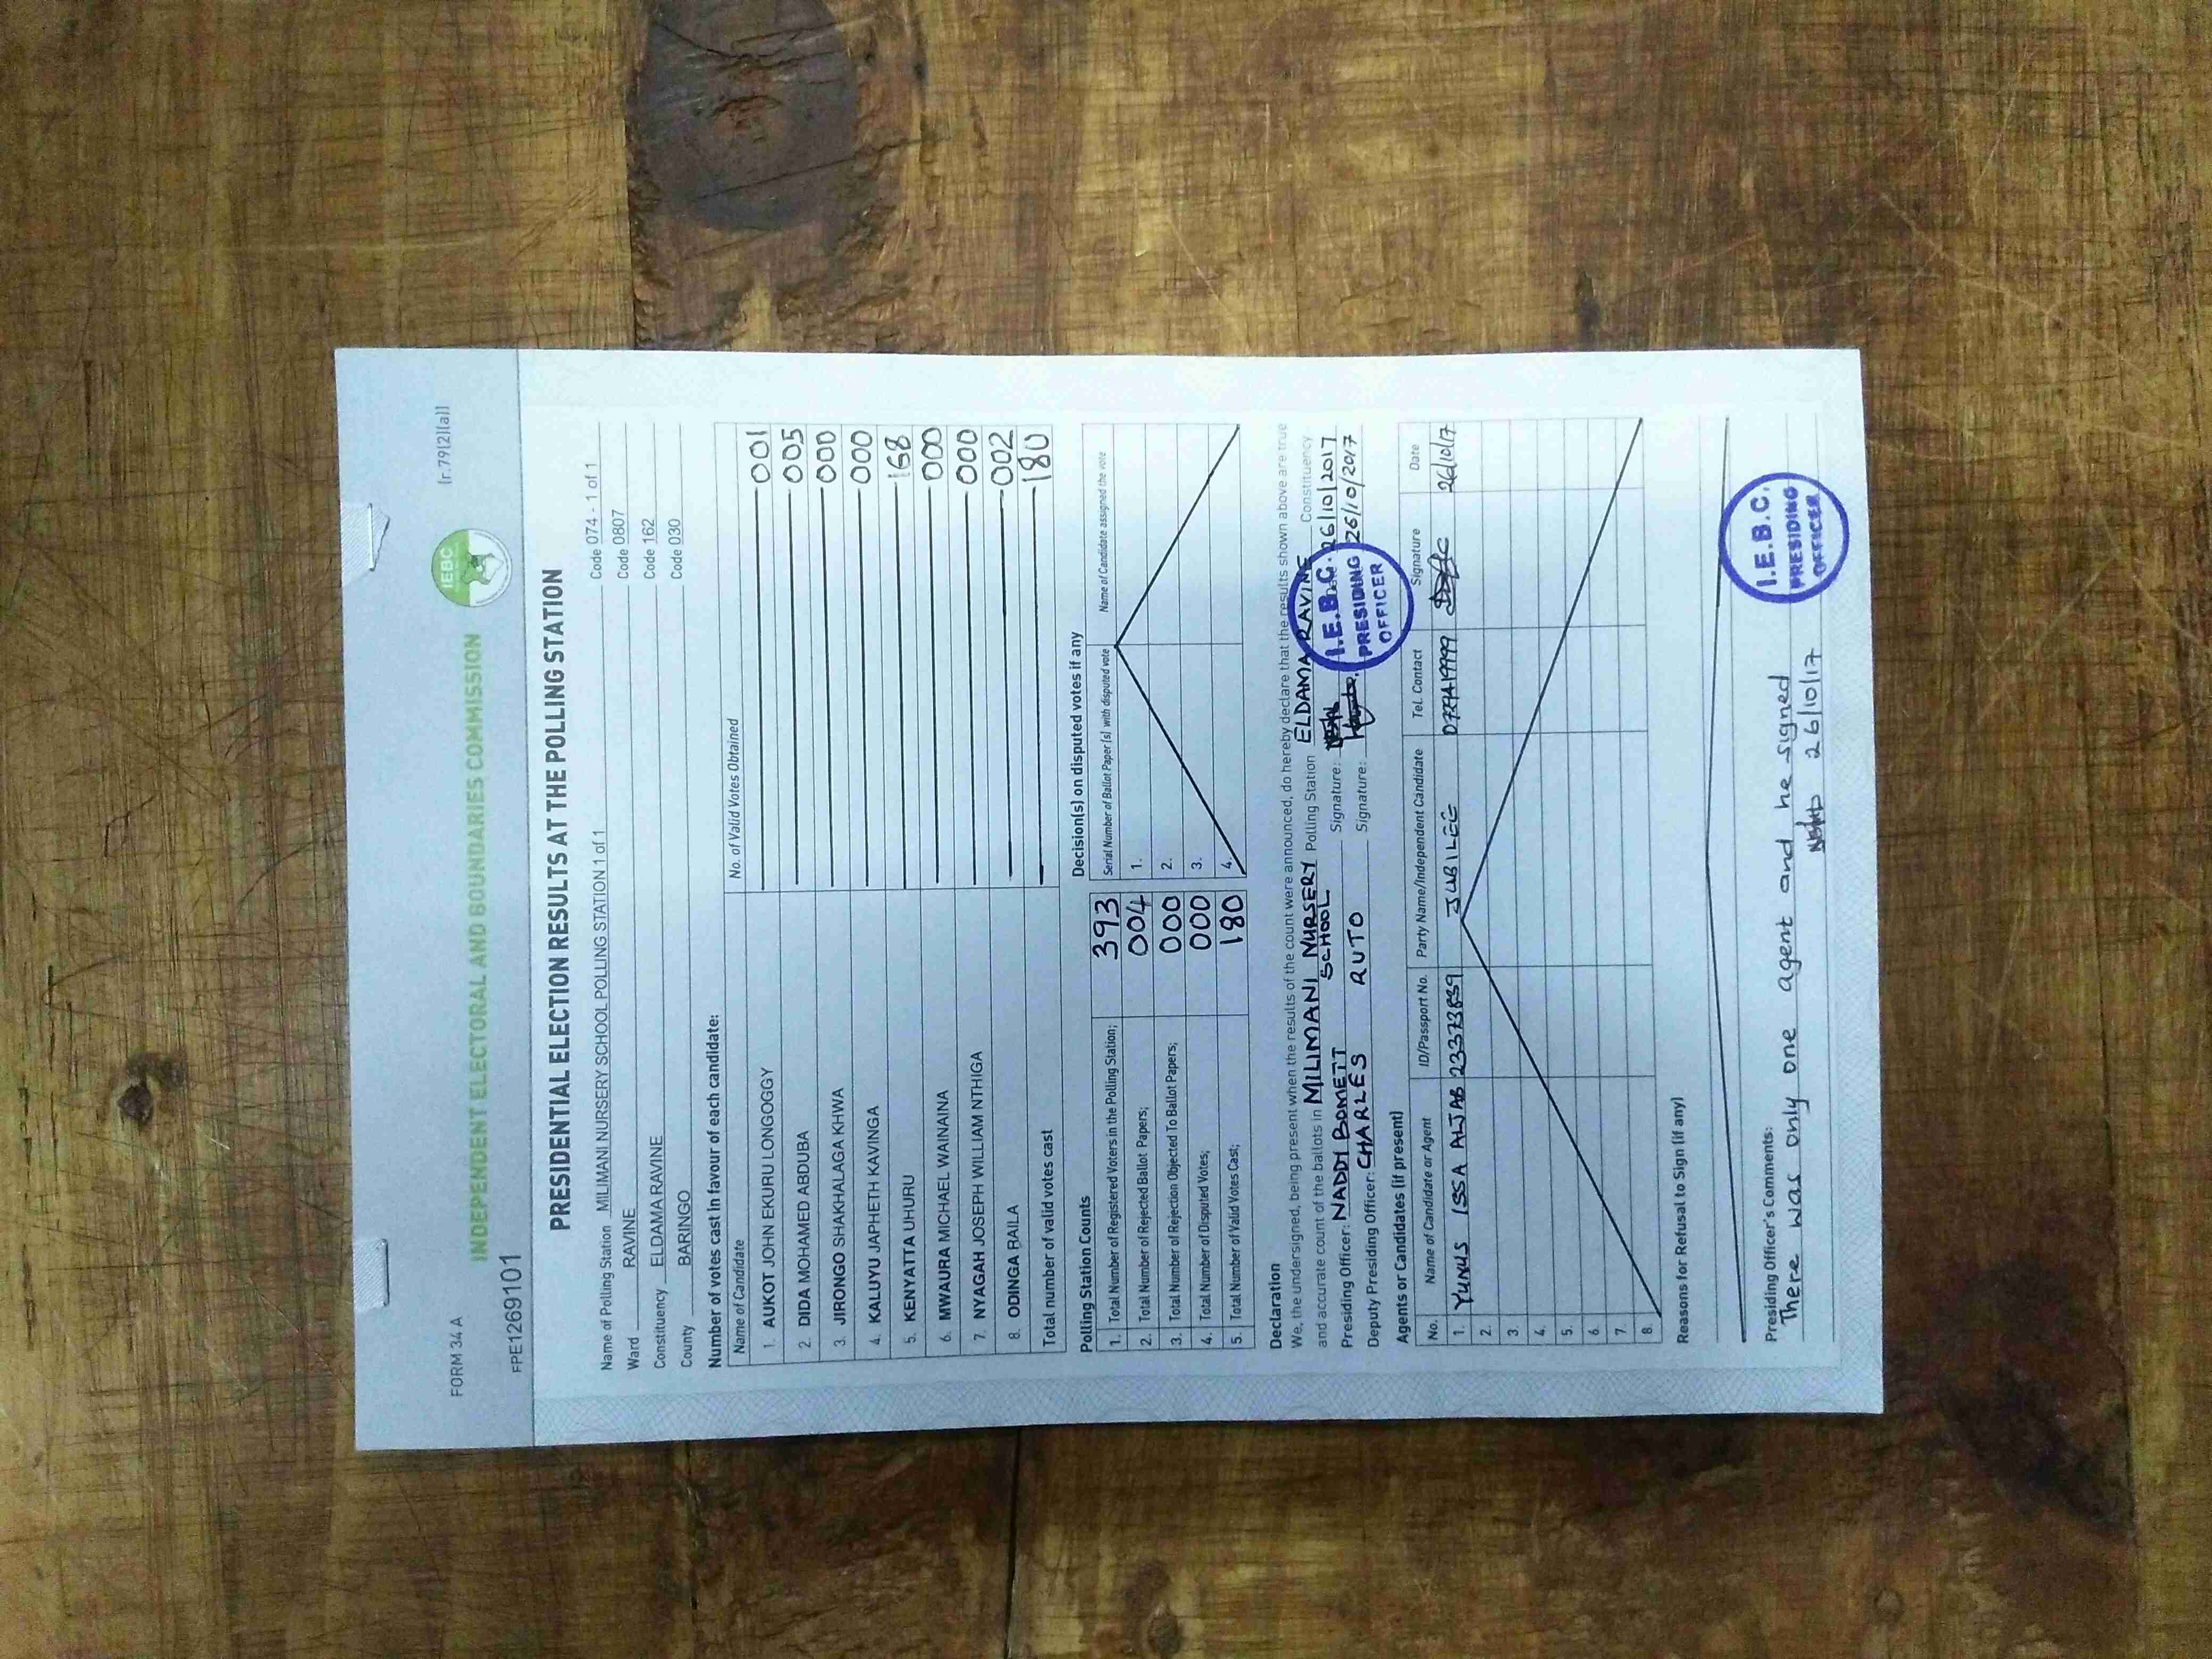 FORM 34 A
[r.79(2)(a)]
IEBC
INDEPENDENT ELECTORAL AND BOUNDARIES COMMISSION
FPE1269101
PRESIDENTIAL ELECTION RESULTS AT THE POLLING STATION
Name of Polling Station MILIMANI NURSERY SCHOOL POLLING STATION 1 of 1 Code 074 - 1 of 1
Ward RAVINE Code 0807
Constituency ELDAMA RAVINE Code 162
County BARINGO Code 030
Number of votes cast in favour of each candidate:
Name of Candidate No. of Valid Votes Obtained
1. AUKOT JOHN EKURU LONGOGGY 001
2. DIDA MOHAMED ABDUBA 005
3. JIRONGO SHAKHALAGA KHWA 000
4. KALUYU JAPHETH KAVINGA 000
5. KENYATTA UHURU 168
6. MWAURA MICHAEL WAINAINA 000
7. NYAGAH JOSEPH WILLIAM NTHIGA 000
8. ODINGA RAILA 002
Total number of valid votes cast 180
Polling Station Counts
1. Total Number of Registered Voters in the Polling Station; 393
2. Total Number of Rejected Ballot Papers; 004
3. Total Number of Rejection Objected To Ballot Papers; 000
4. Total Number of Disputed Votes; 000
5. Total Number of Valid Votes Cast; 180
Decision(s) on disputed votes if any
Serial Number of Ballot Paper(s) with disputed vote Name of Candidate assigned the vote
1.
2.
3.
4.
Declaration
We, the undersigned, being present when the results of the count were announced, do hereby declare that the results shown above are true
and accurate count of the ballots in MILIMANI NURSERY SCHOOL Polling Station ELDAMA RAVINE Constituency
Presiding Officer: NADDY BOMETT Signature: 26/10/2017
Deputy Presiding Officer: CHARLES RUTO Signature: 26/10/2017
I.E.B.C.
PRESIDING
OFFICER
Agents or Candidates (if present)
No. Name of Candidate or Agent ID/Passport No. Party Name/Independent Candidate Tel. Contact Signature Date
1. YUNUS ISSA 23373839 JUBILEE 26/10/17
2.
3.
4.
5.
6
7.
8.
Reasons for Refusal to Sign (if any)
Presiding Officer's Comments:
There was only one agent and he signed
26/10/17
I.E.B.C.
PRESIDING
OFFICER